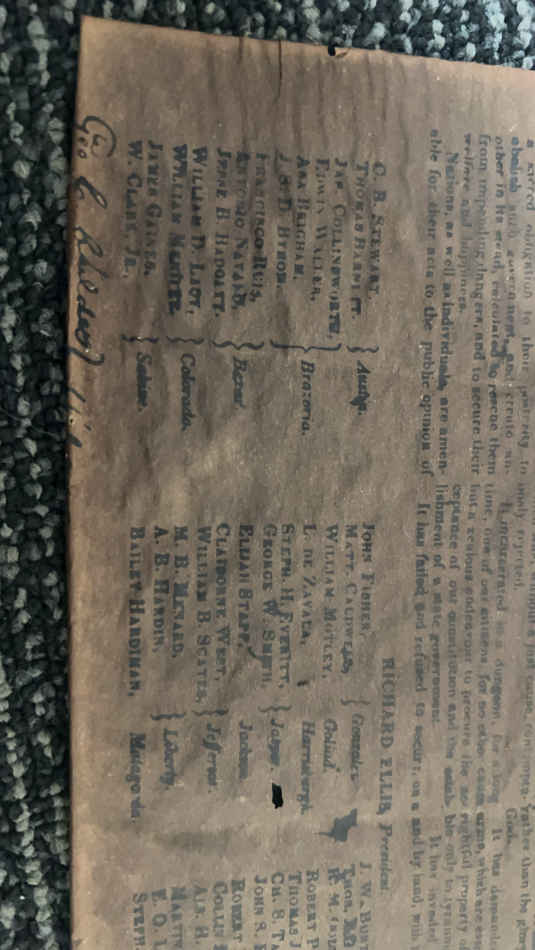 a sacred obligation to their posterity to
abolish such government, and create an-
other in its stead, calculated to rescue them
from impending dangers, and to secure their
welfare and happiness.
Nations, as well as individuals, are amen-
able for their acts to the public opinion of
C. B. STEWART,
THOMAS BARNETT. } Austin.
JAS. COLLINSWORTH,
EDWIN WALLER,
ASA BRIGHAM,
J. S. D. BYROM. } Brazoria.
FRANCISCO RUIS,
ANTONIO NAVARO,
JESSE B. BADGETT. } Bexar.
WILLIAM D. LACY,
WILLIAM MENIFEE. } Colorado.
JAMES GAINES,
W. CLARK, JR., } Sabine.
Geo C
only rejected.
It incarcerated in a dungeon, for a long
time, one of our citizens, for no other cause
but a zealous endeavour to procure the ac-
ceptance of our constitution and the estab-
lishment of a state government.
It has failed and refused to secure, on a
RICHARD ELLIS, President.
JOHN FISHER,
MATT. CALDWELL, } Gonzales
WILLIAM MOTLEY, Goliad.
L. DE ZAVALA, Harrisburgh.
STEPH. H. EVERITT,
GEORGE W. SMITH, } Jasper
ELIJAH STAPP, Jackson.
CLAIBORNE WEST,
WILLIAM B. SCATES, } Jefferson.
M. B. MENARD,
A. B. HARDIN, } Liberty.
BAILEY HARDIMAN, Matagorda.
rather than the
God.
It has demand
arms, which are
rightful property
ble only to tyrann
It has invaded
and by land, with
J. W. BUN
THOS.
ROBERT P
THOMAS J
CH. S. TA
JOHN S.
ROBERT
COLLIN
ALB. H.
MARTIN
E. O. L
STEPH